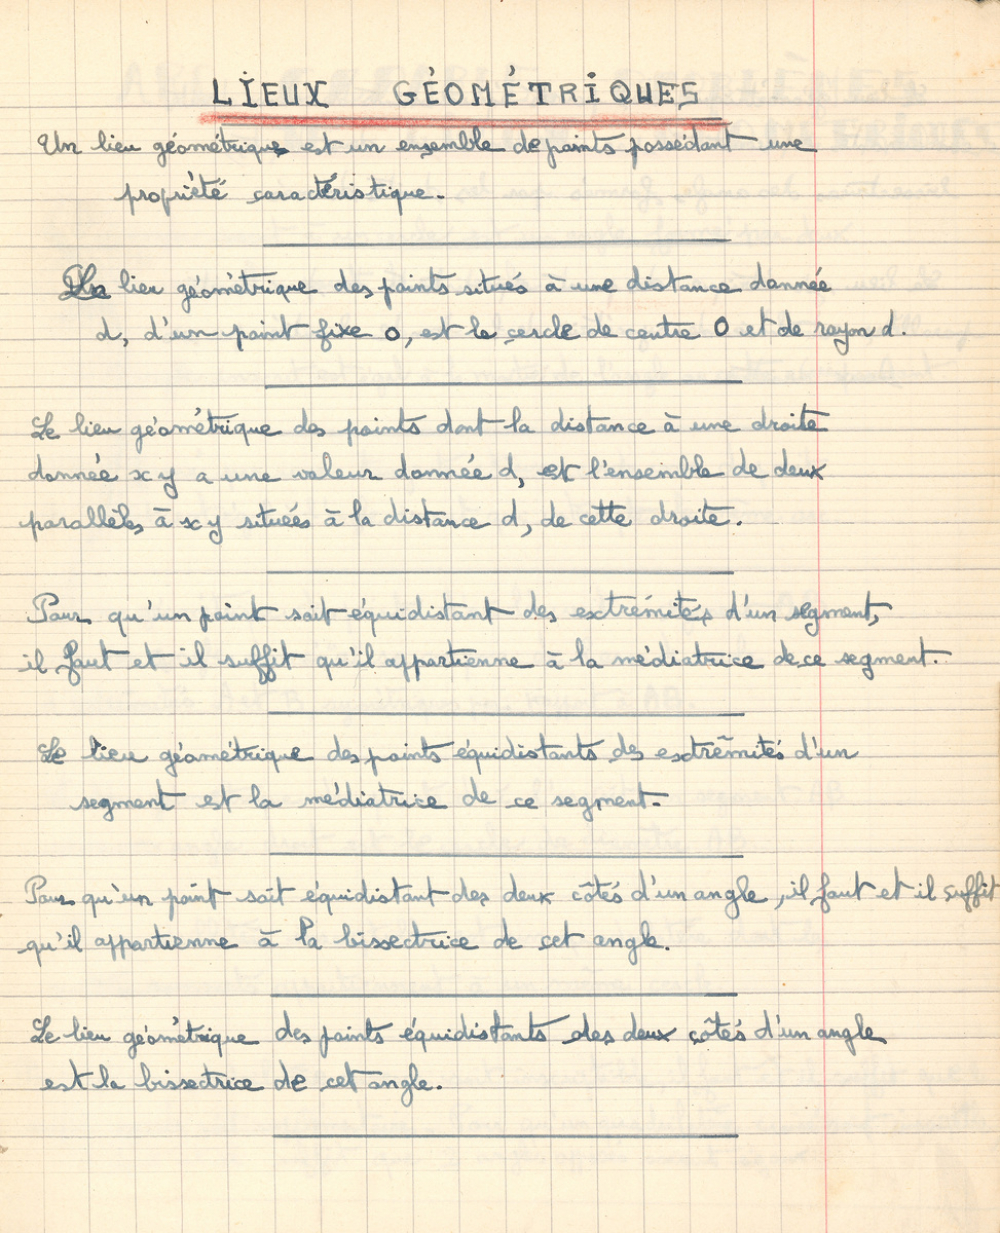 LIEUX GÉOMÉTRIQUES
Un lieu géométrique est un ensemble de points possédant une
propriété caractéristique.
Un lieu géométrique des points situés à une distance donnée
d, d'un point fixe O, est le cercle de centre O et de rayon d.
Le lieu géométrique des points dont la distance à une droite
donnée xy a une valeur donnée d, est l'ensemble de deux
parallèles à xy situées à la distance d, de cette droite.
Pour qu'un point soit équidistant des extrémités d'un segment,
il faut et il suffit qu'il appartienne à la médiatrice de ce segment.
Le lieu géométrique des points équidistants des extrémités d'un
segment est la médiatrice de ce segment.
Pour qu'un point soit équidistant des deux côtés d'un angle, il faut et il suffit
qu'il appartienne à la bissectrice de cet angle.
Le lieu géométrique des points équidistants des deux côtés d'un angle
est la bissectrice de cet angle.